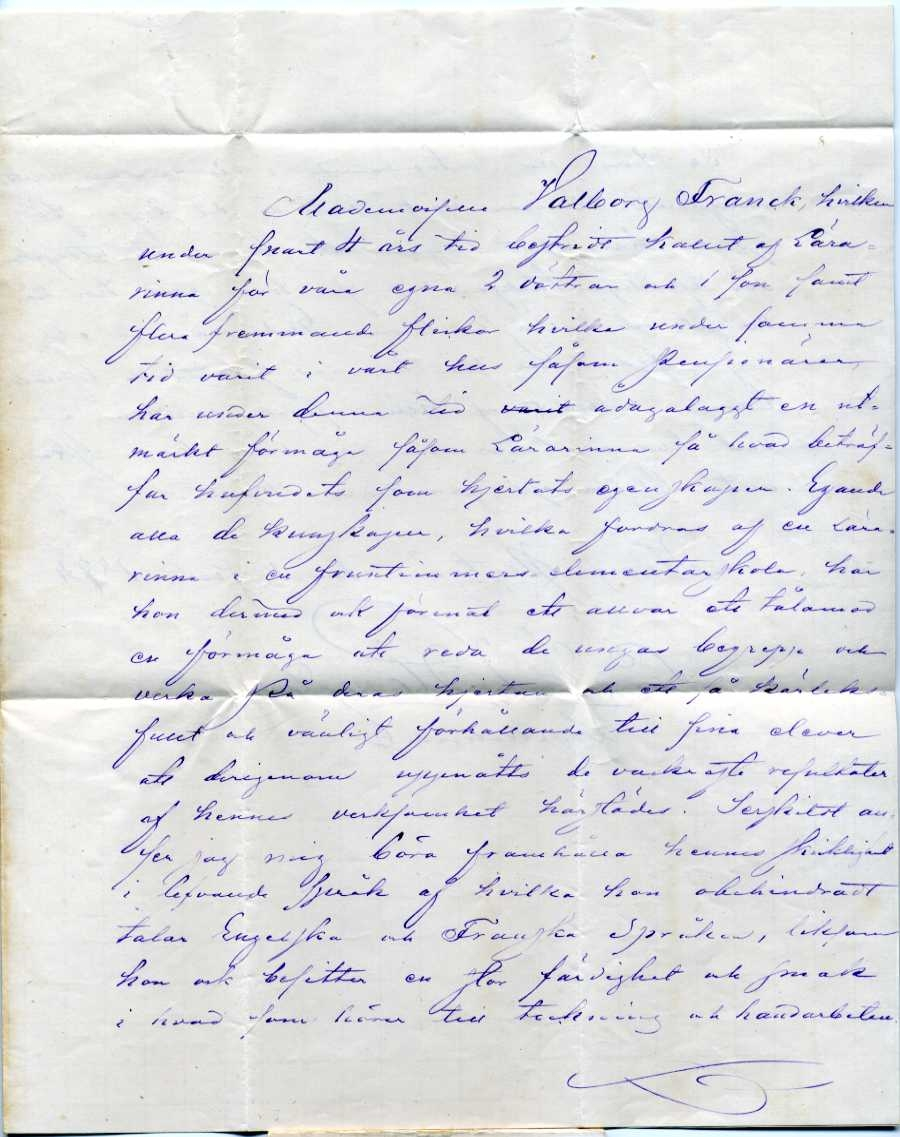 Mademoiselle Valborg Franck, hvilken
under snart 4 års tid bestridt kallet af Lära-
rinna för våra egna 2 döttrar och 1 son samt
flera fremmande flickor hvilka under samma
tid varit i vårt hus såsom Pensionärer,
har under denna tid varit ådagalaggt en ut-
märkt förmåga såsom Lärarinna så hvad beträf-
far hufvudets som hjertats egenskaper. Egande
alla de kunskaper, hvilka fordras af en Lära-
rinna i en fruntimmers elementarskola, har
hon dermed ock förenat ett allvar ett tålamod
en förmåga att reda de ungas begrepp och
verka på deras hjertan och ett så kärleks-
fullt och vänligt förhållande till sina elever
att derigenom uppnåtts de vackraste resultater
af hennes verksamhet härstädes. Serskildt an-
ser jag mig böra framhålla hennes skicklighet
i lefvande språk af hvilka hon obehindradt
talar Engelska och Franska Språken, liksom
hon ock besitter en stor färdighet och smak
i hvad som hörer till teckning och handarbeten.